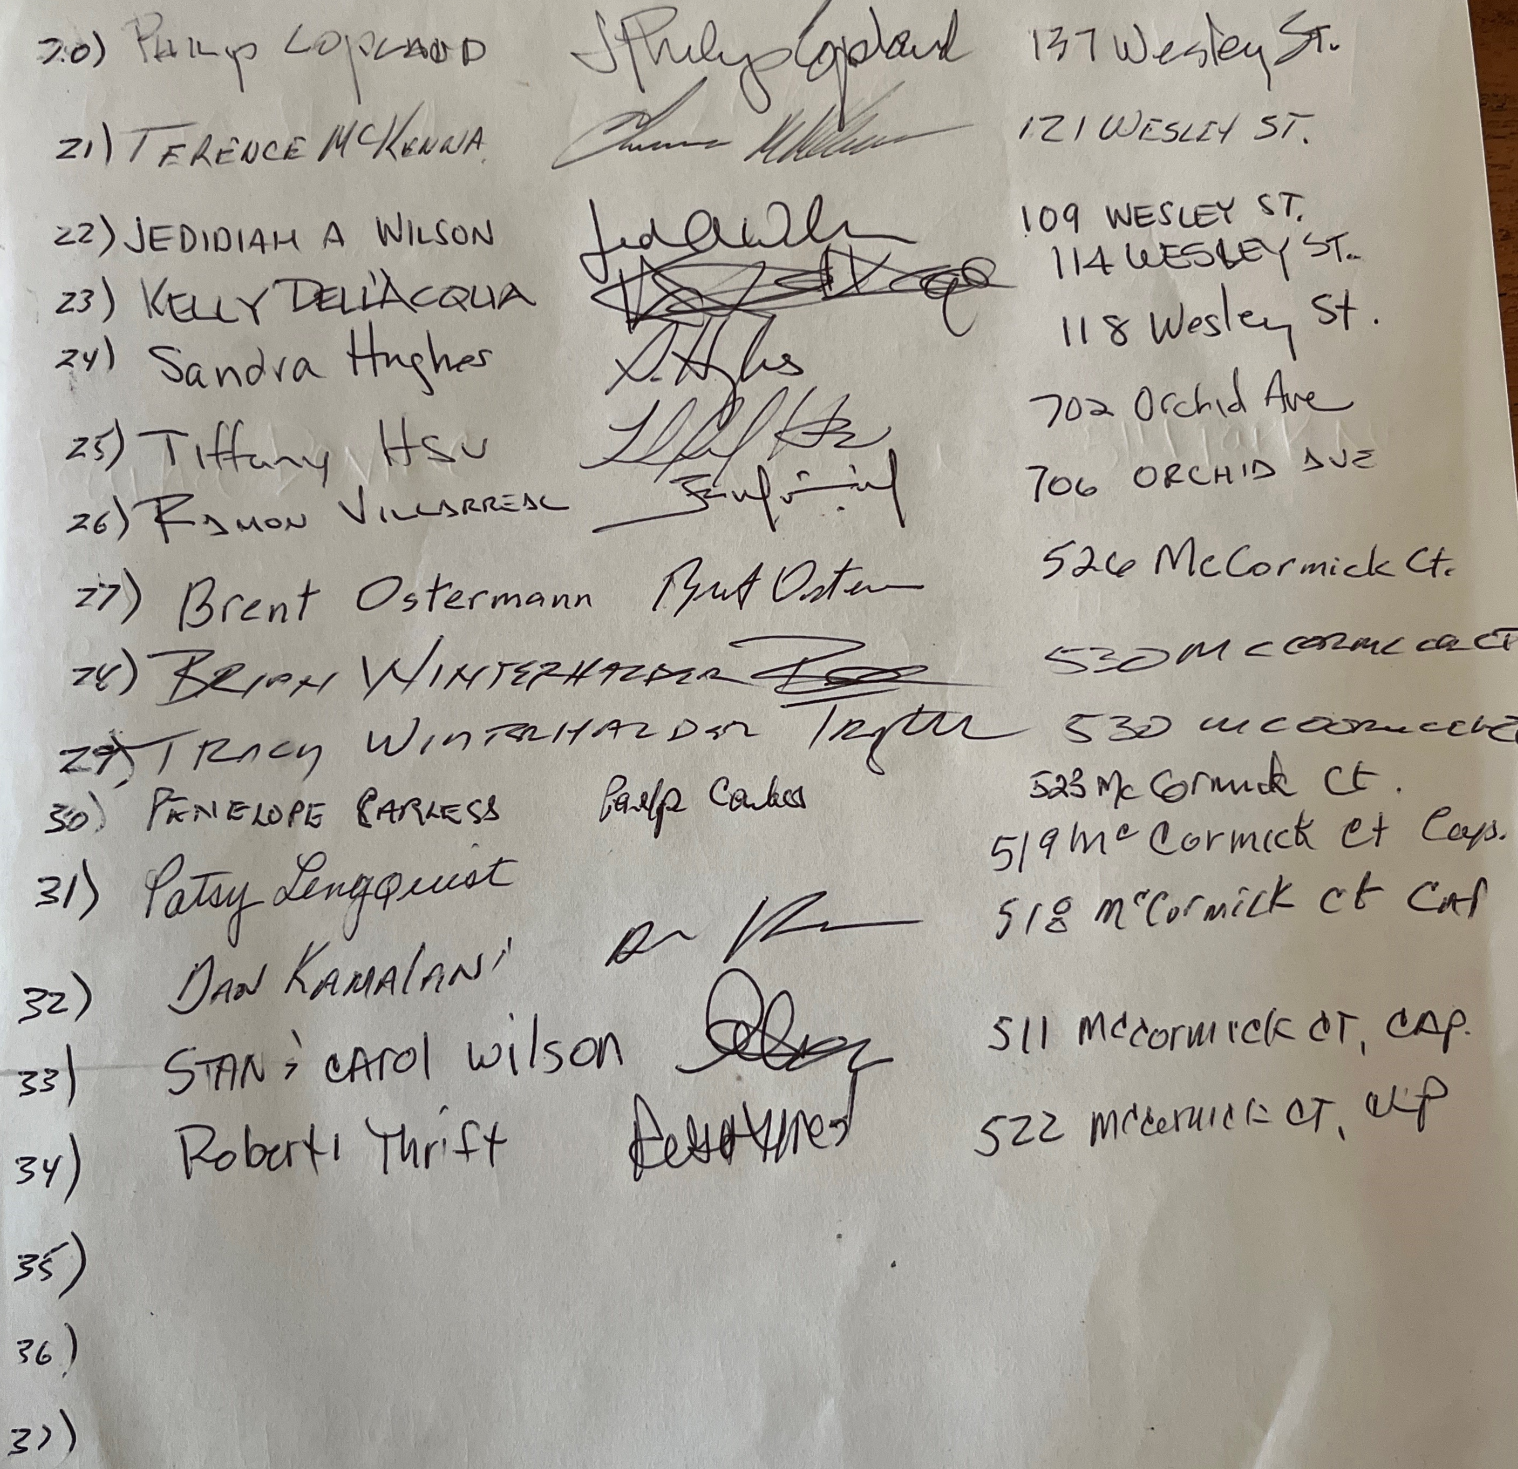 20) Philip Copeland J Philip Copeland 137 Wesley St.
21) TERENCE McKENNA 121 WESLEY ST.
22) JEDIDIAH A WILSON 109 WESLEY ST.
23) KELLY DELL'ACQUA 114 WESLEY ST.
24) Sandra Hughes S. Hughes 118 Wesley St.
25) Tiffany Hsu 702 Orchid Ave
26) RAMON VILLARREAL 706 ORCHID AVE
27) Brent Ostermann 526 McCormick Ct.
28) BRIAN WINTERHALDER 530 McCORMICK CT
29) TRACY WINTERHALDER 530 McCORMICK
30) PENELOPE CARLESS 523 McCormick Ct.
31) Patsy Lengquist 519 Mc Cormick Ct Cap.
32) DAN KAMALANI 518 McCormick Ct CAP
33) STAN & CAROL Wilson 511 McCormick CT, CAP.
34) Roberti Thrift 522 McCormick CT, CAP
35)
36)
37)